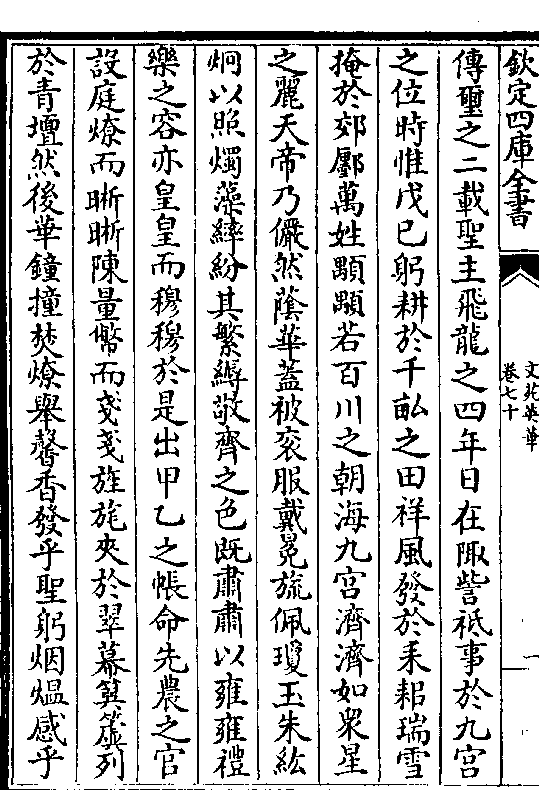 欽定四庫全書
文苑英華
卷七十
傳璽之二載聖主飛龍之四年日在陬訾祗事於九宫
之位時惟戊已躬耕於千畝之田祥風發於耒耜瑞雪
掩於郊鄽萬姓顒顒若百川之朝海九宫濟濟如衆星
之麗天帝乃儼然蔭華蓋被衮服戴冕旒佩瓊玉朱紘
炯以照燭藻繂紛其繁縟敬齊之色既肅肅以雍雍禮
樂之容亦皇皇而穆穆於是出甲乙之帳命先農之官
設庭燎而晰晰陳量幣而戔戔旌旄夾於翠幕簨簴列
於青壇然後華鐘撞焚燎舉馨香發乎聖躬烟煴感乎